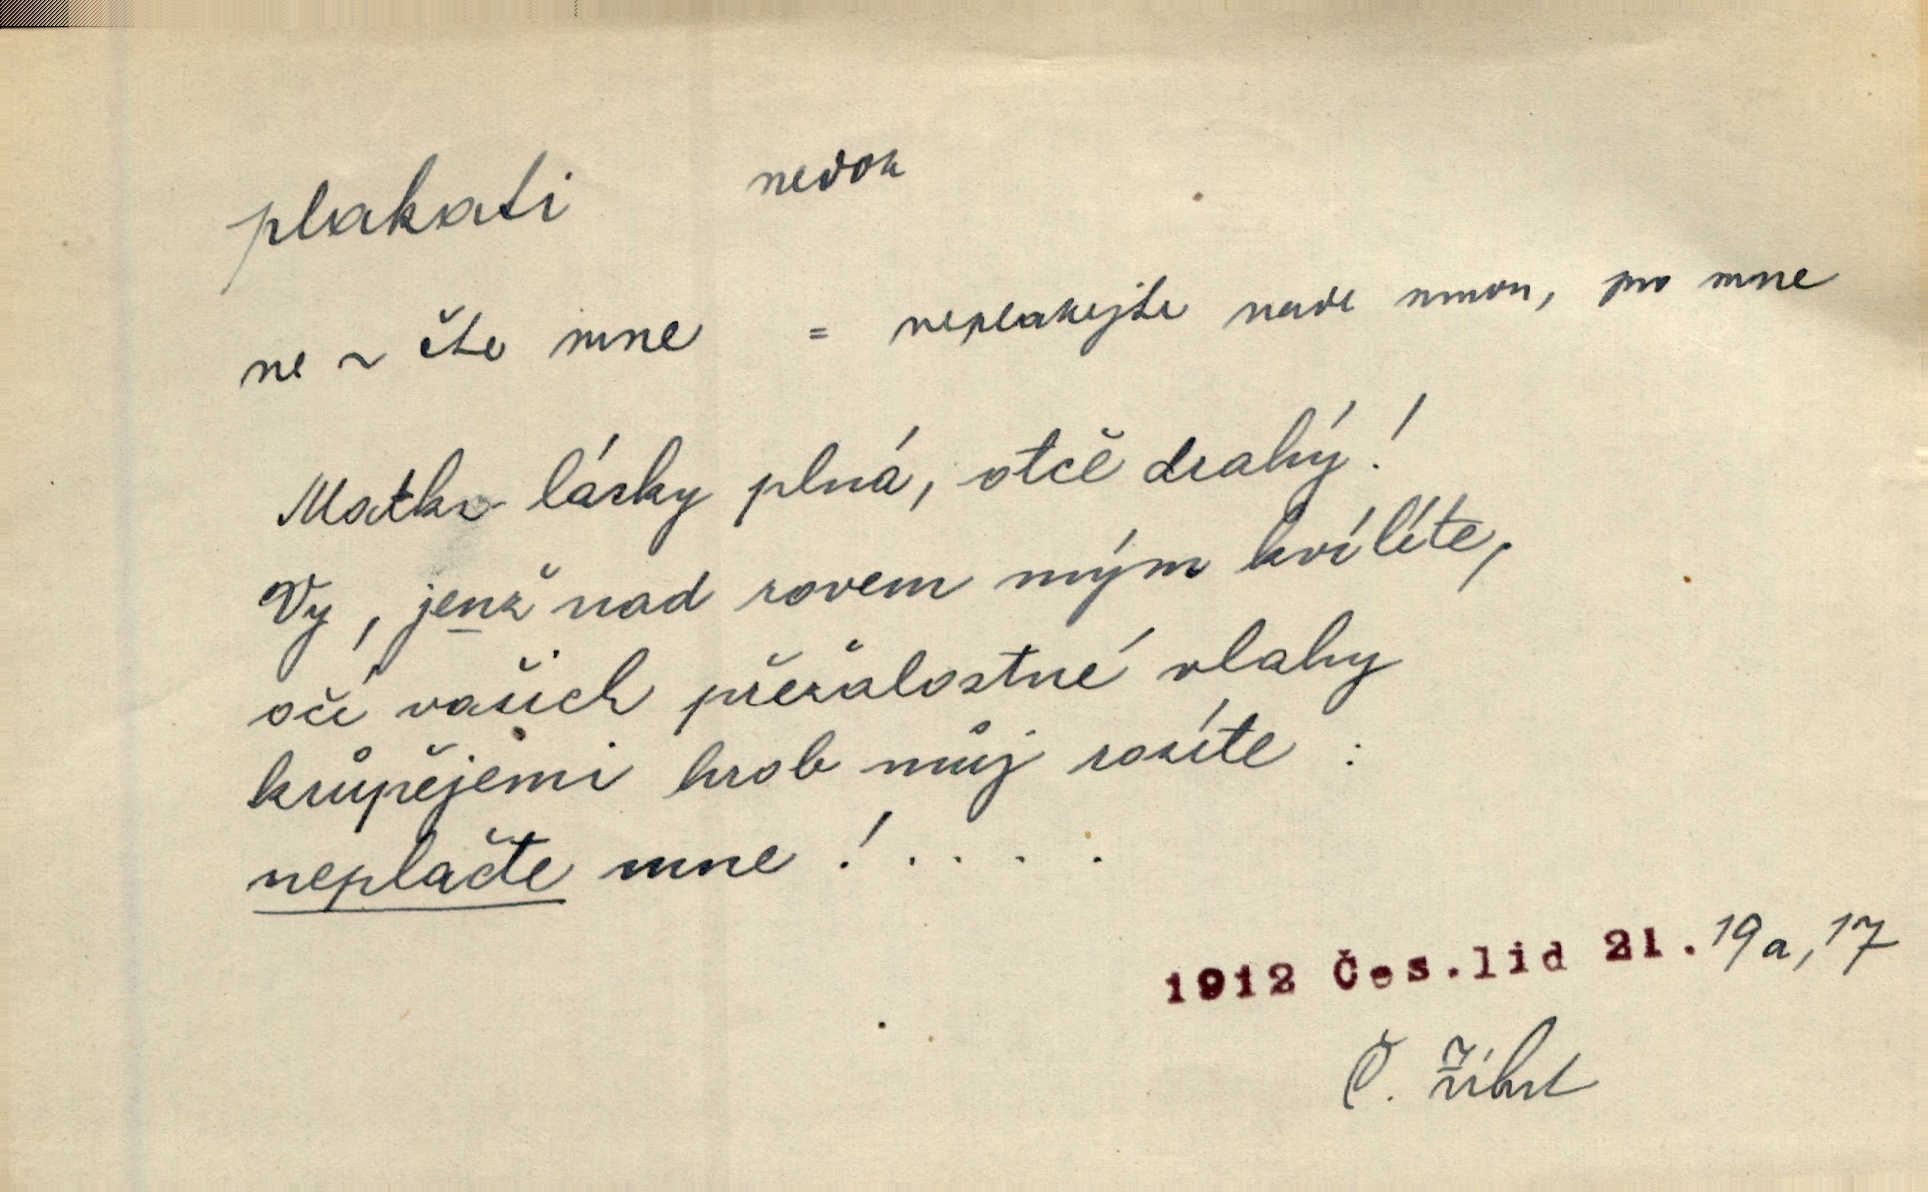 plakati nedok
ne ~ čte mne = neplakejte nade mnou, pro mne
Matko lásky plná, otčě drahý!
Vy, jenž nad rovem mým kvílíte,
očí vašich přežalostné vlahy
krůpějemi hrob můj rosíte :
neplačte mne ! . . . .
1912 Čes.lid 21. 19a, 17
Č. Zíbrt